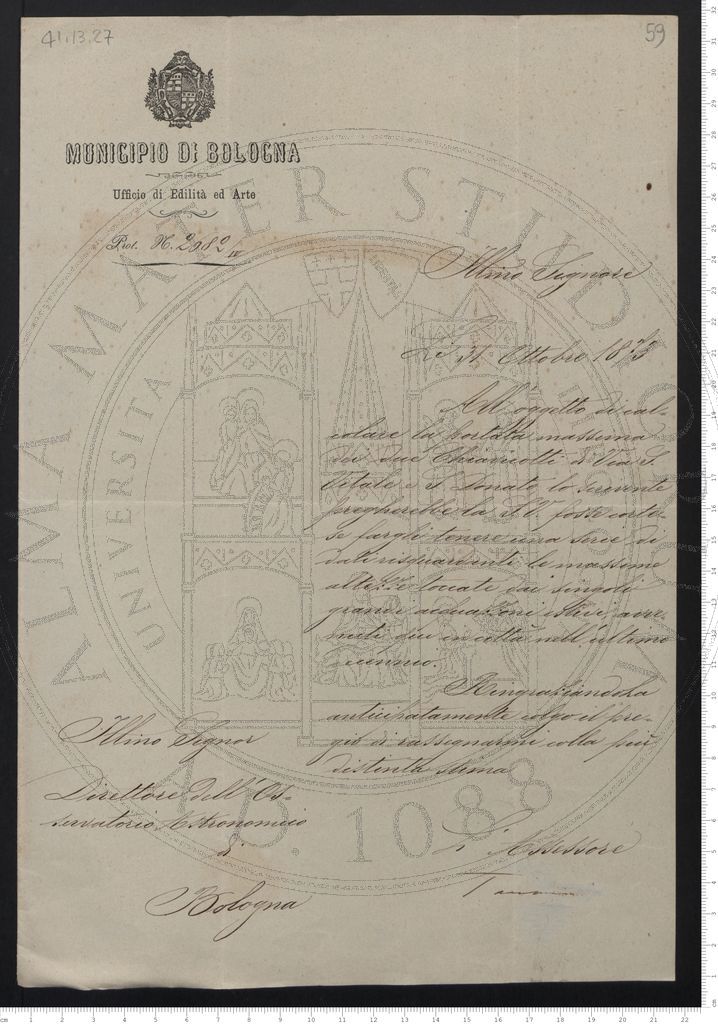 41.13.27
59
MUNICIPIO DI BOLOGNA
Ufficio di Edilità ed Arte
Prot. N. 2982 IV
Illmo Signore
Li 31 Ottobre 1873
All'oggetto di cal-
colare la portata massima
dei due Chiavicotti di Via S.
Vitale e S. Donato lo scrivente
pregherebbe la S. V. fosse corte-
se fargli tenere una serie di
dati risguardanti le massime
altezze toccate dai singoli
grandi acquazzoni estivi avve-
nuti qui in città nell'ultimo
Ringraziandola
anticipatamente colgo il pre-
gio di rassegnarmi colla più
distinta stima
Illmo Signor
Direttore dell'Os-
servatorio Astronomico
di
Bologna
L'Assessore
ALMA MATER STUDIORUM
UNIVERSITA
A.D. 1088